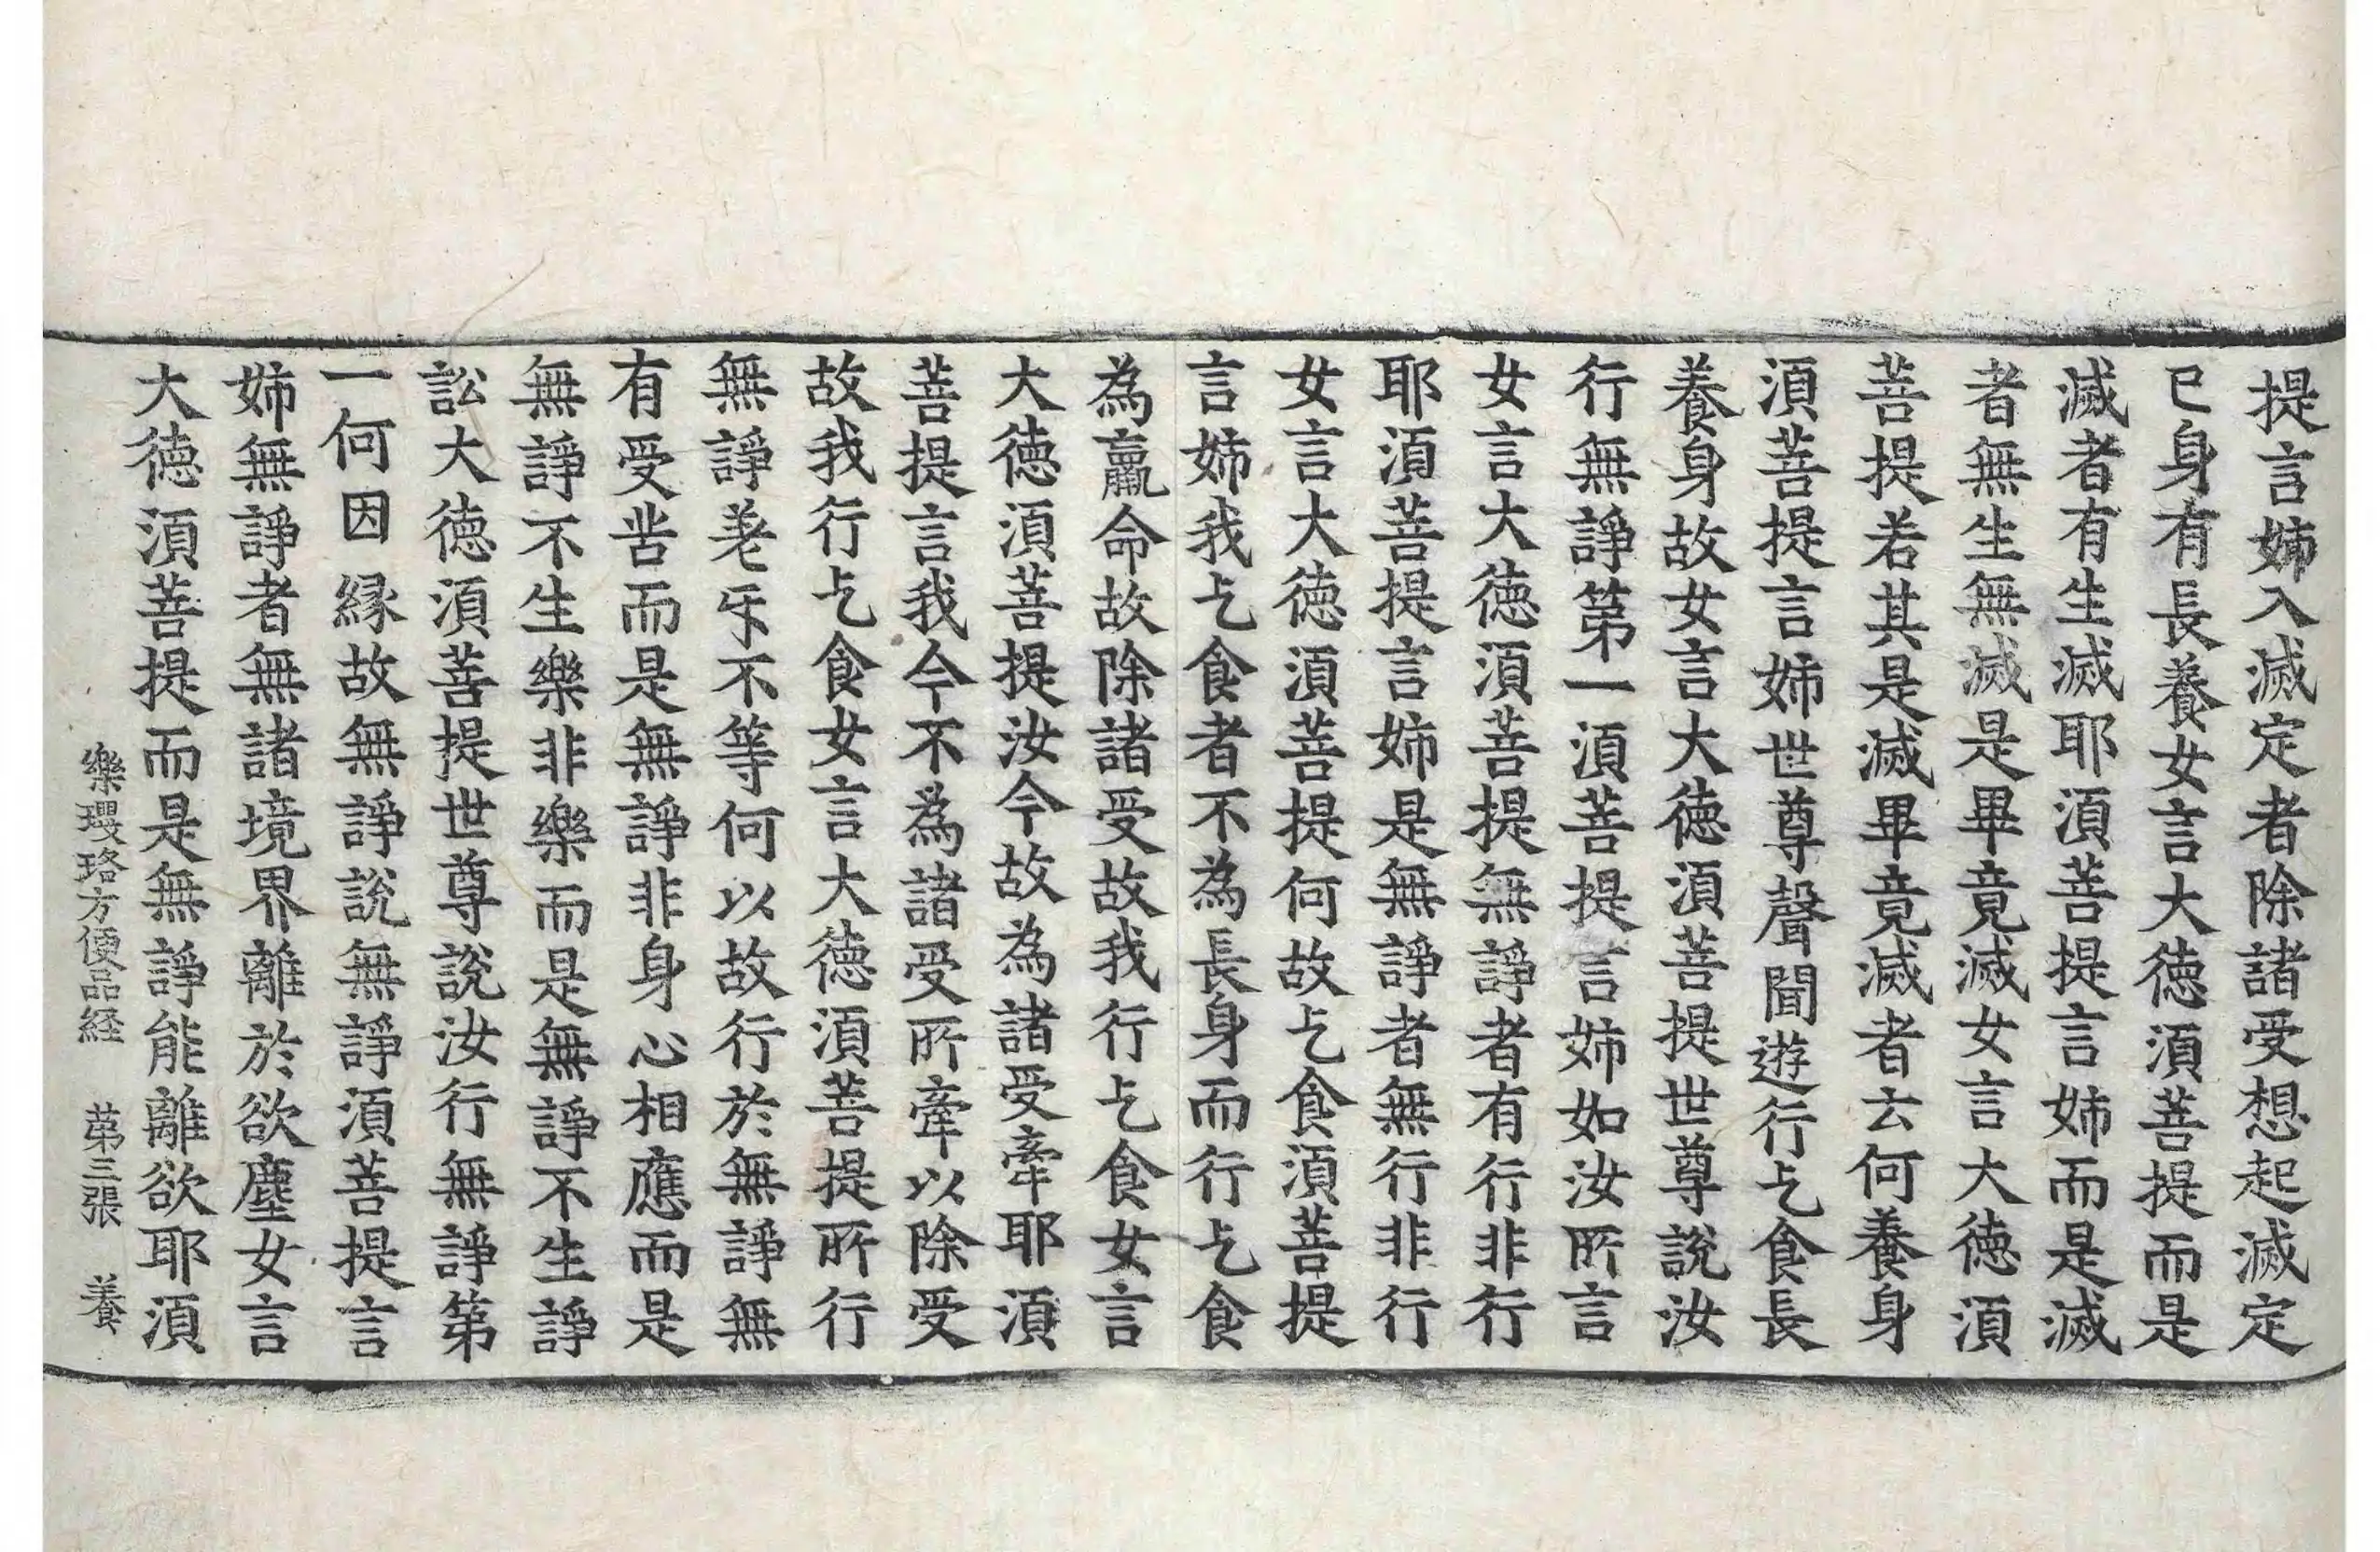 提言姉入滅定者除諸受想起滅定
已身有長養女言大德須菩提而是
滅者有生滅耶須菩提言姉而是滅
者無生無滅是畢竟滅女言大德須
菩提若其是滅畢竟滅者云何養身
須菩提言姉世尊聲聞遊行乞食長
養身故女言大德須菩提世尊說汝
行無諍第一須菩提言姉如汝所言
女言大德須菩提無諍者有行非行
耶須菩提言姉是無諍者無行非行
女言大德須菩提何故乞食須菩提
言姉我乞食者不為長身而行乞食
為羸命故除諸受故我行乞食女言
大德須菩提汝今故為諸受牽耶須
菩提言我今不為諸受所牽以除受
故我行乞食女言大德須菩提所行
無諍差牙不等何以故行於無諍無
有受呰而是無諍非身心相應而是
無諍不生樂非樂而是無諍不生諍
訟大德須菩提世尊說汝行無諍第
一何因縁故無諍說無諍須菩提言
姉無諍者無諸境界離於欲塵女言
大德須菩提而是無諍能離欲耶須
樂瓔珞方便品経　第三張　養